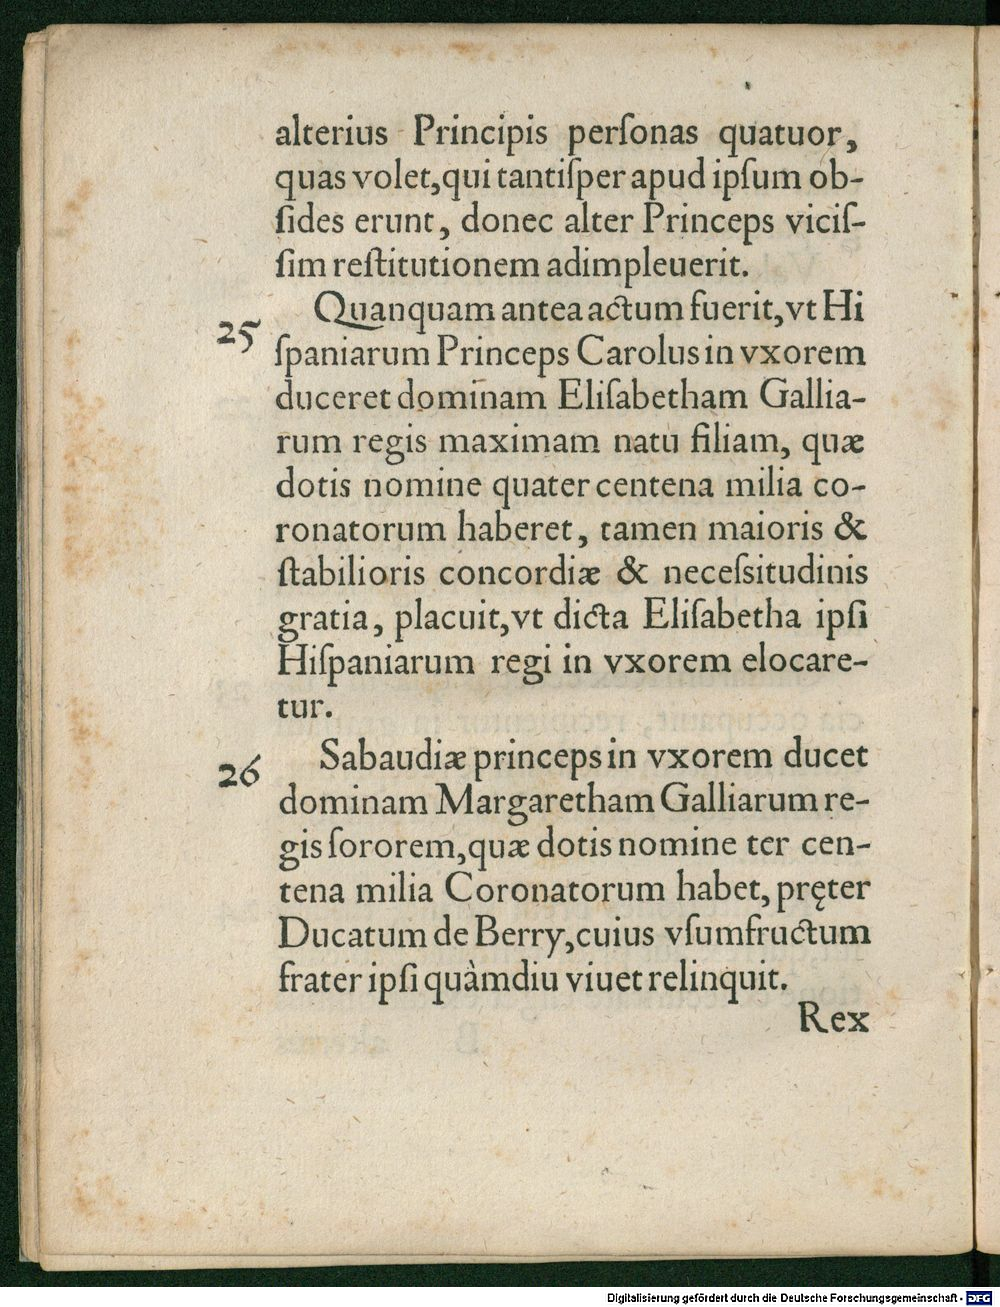 alterius Principis perſonas quatuor,
quas volet,qui tantiſper apud ipſum ob-
ſides erunt, donec alter Princeps viciſ-
ſim reſtitutionem adimpleuerit.
25 Quanquam antea actum fuerit,vt Hi
ſpaniarum Princeps Carolus in vxorem
duceret dominam Eliſabetham Gallia-
rum regis maximam natu filiam, quæ
dotis nomine quater centena milia co-
ronatorum haberet, tamen maioris &
ſtabilioris concordiæ & neceſsitudinis
gratia, placuit,vt dicta Eliſabetha ipſi
Hiſpaniarum regi in vxorem elocare-
tur.
26 Sabaudiæ princeps in vxorem ducet
dominam Margaretham Galliarum re-
gis ſororem,quæ dotis nomine ter cen-
tena milia Coronatorum habet, pręter
Ducatum de Berry,cuius vſumfructum
frater ipſi quàmdiu viuet relinquit.
Rex
Digitalisierung gefördert durch die Deutsche Forschungsgemeinschaft - DFG